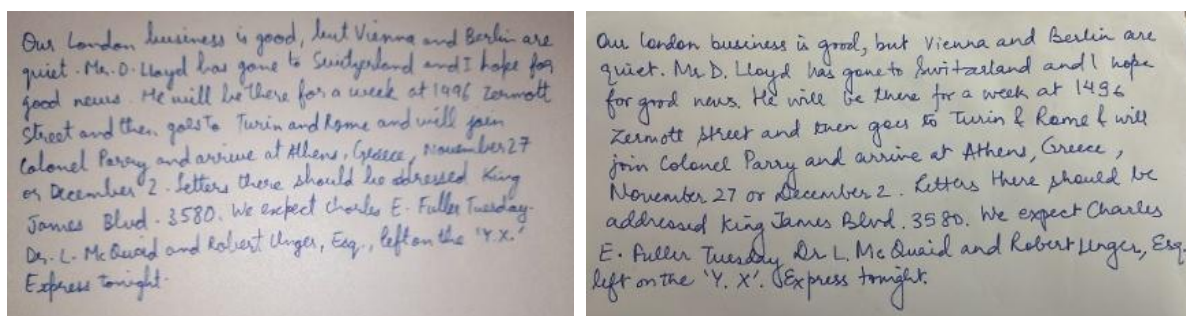 Our London business is good, but Vienna and Berlin are
quiet. Mr. D. Lloyd has gone to Switzerland and I hope for
good news. He will be there for a week at 1496 Zermott
Street and then goes to Turin and Rome and will join
Colonel Parry and arrive at Athens, Greece, November 27
or December 2. Letters there should be adressed King
James Blvd. 3580. We expect Charles E. Fuller Tuesday.
Dr. L. McQuaid and Robert Unger, Esq., left on the 'Y.X.'
Express tonight.
Our London business is good, but Vienna and Berlin are
quiet. Mr. D. Lloyd has gone to Switzerland and I hope
for good news. He will be there for a week at 1496
Zermott Street and then goes to Turin & Rome & will
join Colonel Parry and arrive at Athens, Greece,
November 27 or December 2. Letters there should be
addressed King James Blvd. 3580. We expect Charles
E. Fuller Tuesday Dr L. McQuaid and Robert Unger, Esq.
left on the 'Y. X'. Express tonight.